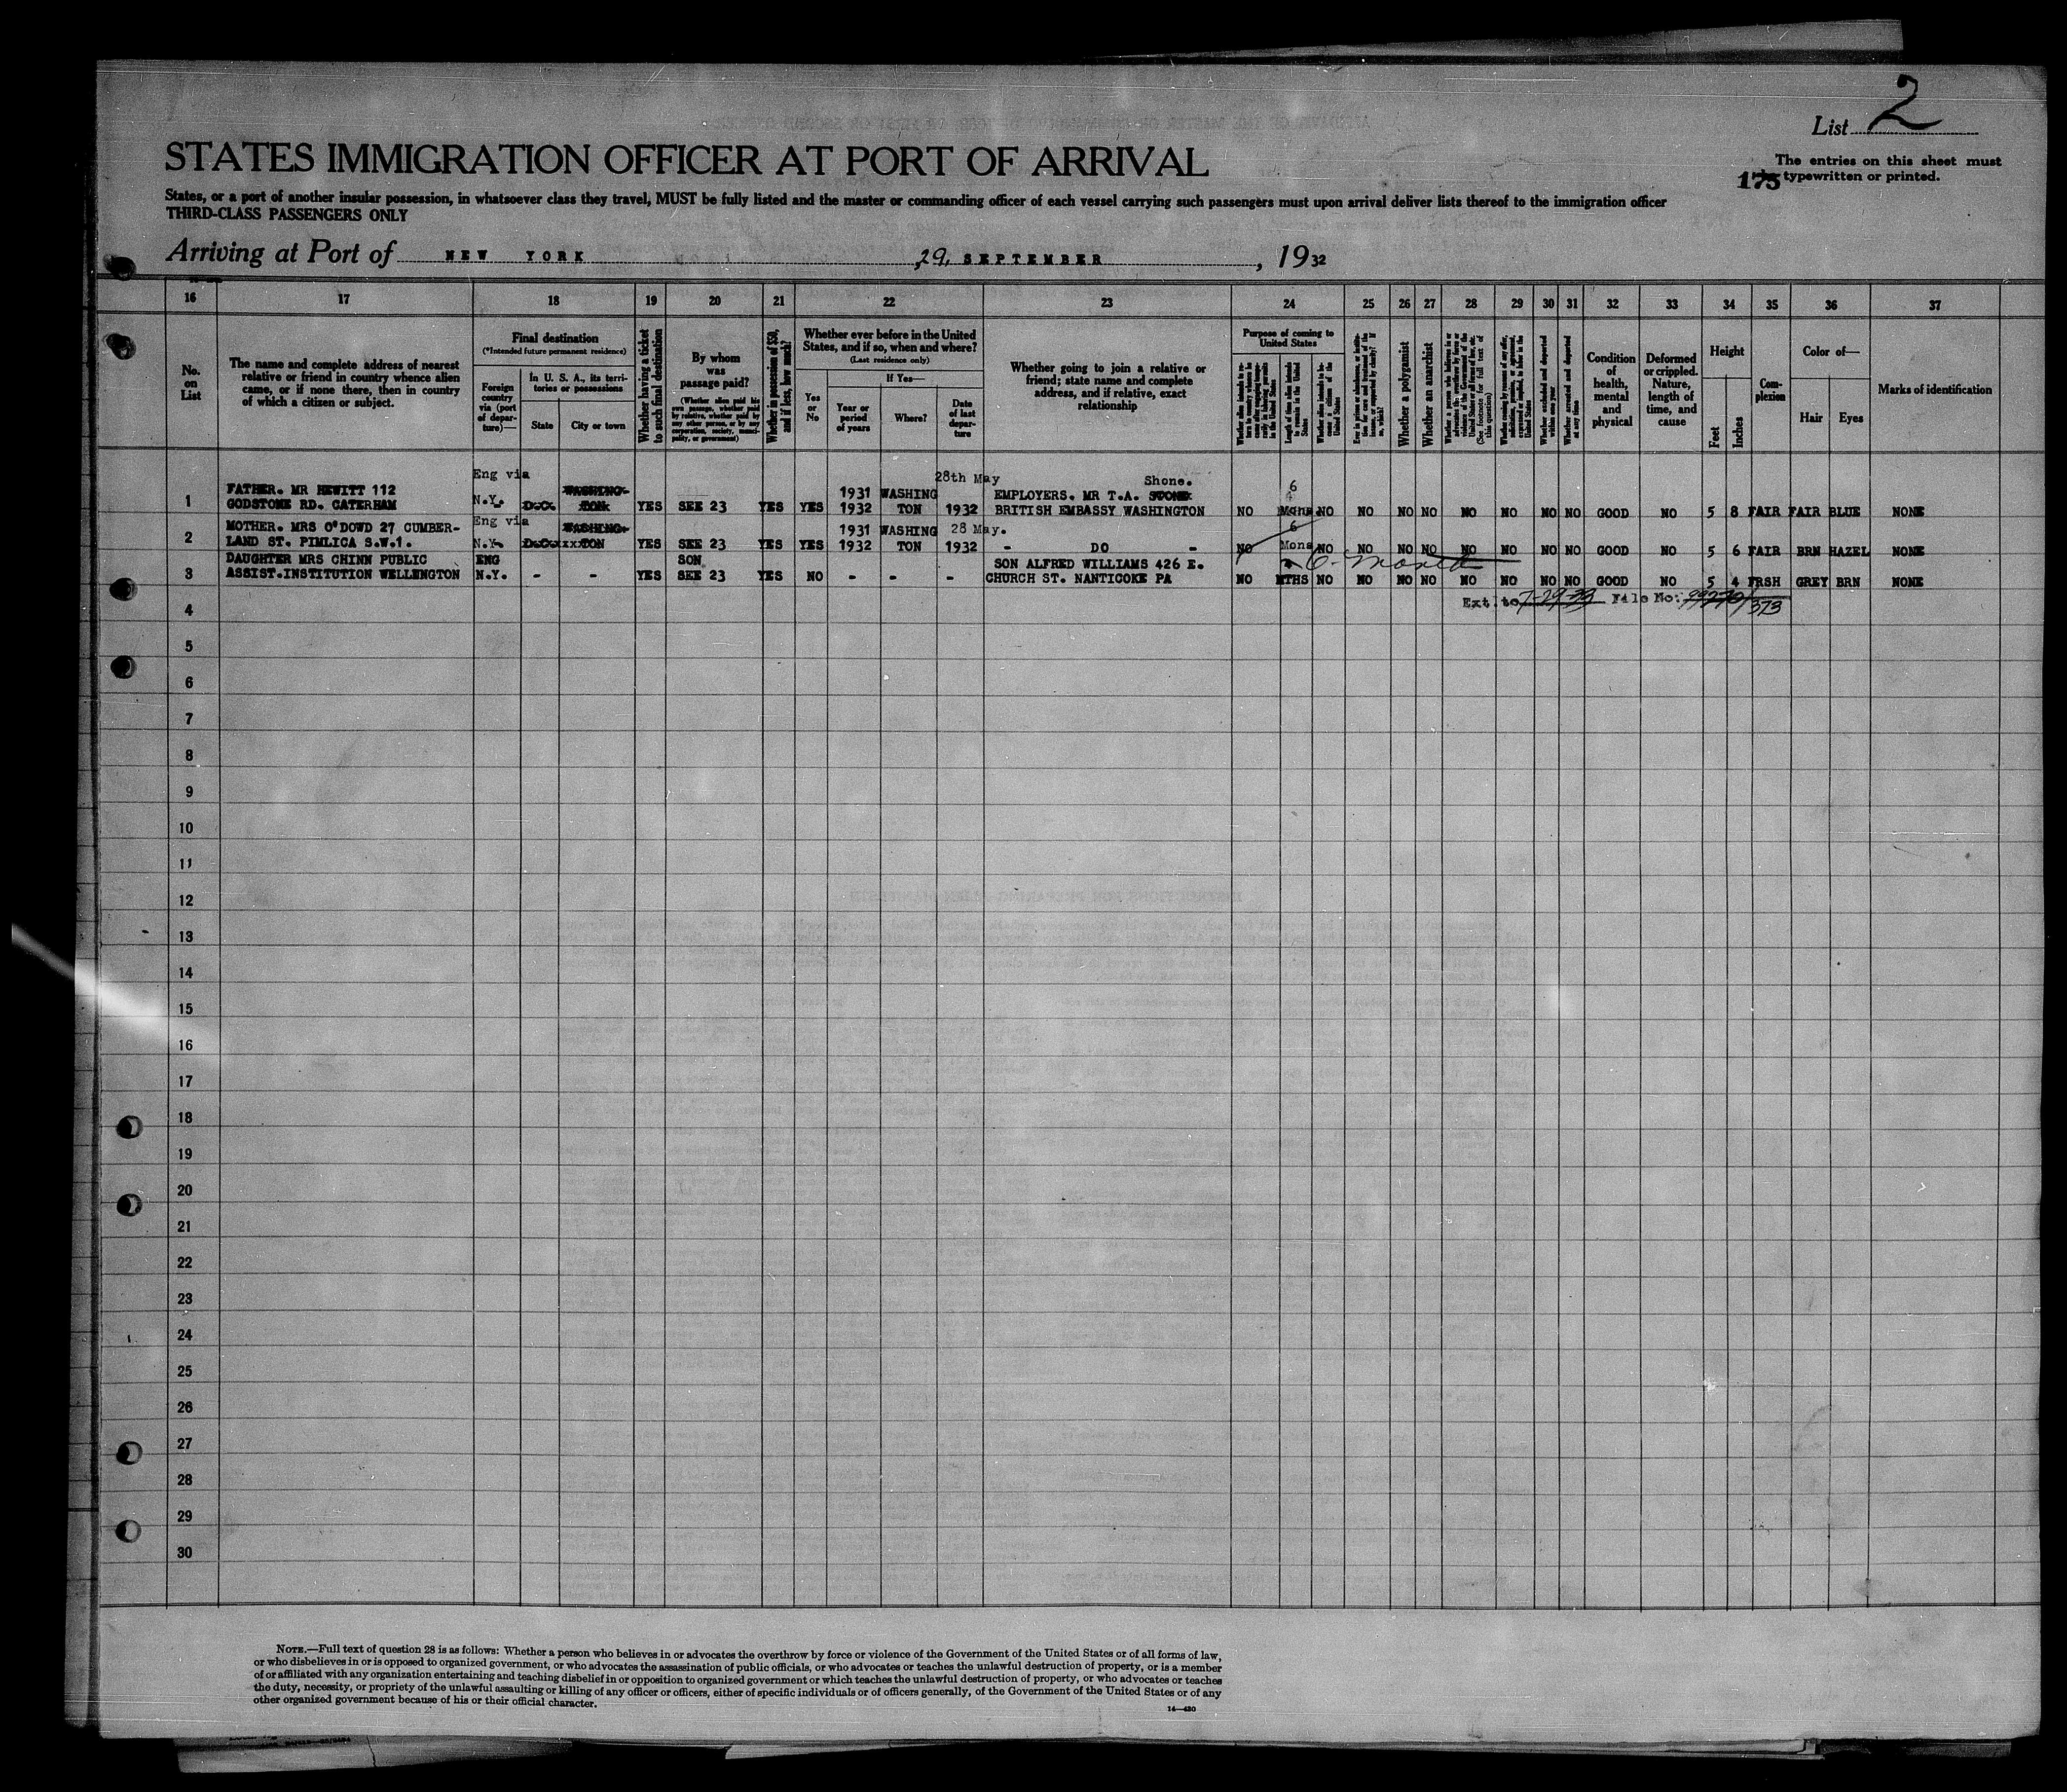 List 2
STATES IMMIGRATION OFFICER AT PORT OF ARRIVAL
The entries on this sheet must
175 typewritten or printed.
States, or a port of another insular possession, in whatsoever class they travel, MUST be fully listed and the master or commanding officer of each vessel carrying such passengers must upon arrival deliver lists thereof to the immigration officer
THIRD-CLASS PASSENGERS ONLY
Arriving at Port of NEW YORK, 29, SEPTEMBER, 1932
16 17 18 19 20 21 22 23 24 25 26 27 28 29 30 31 32 33 34 35 36 37
No. on List
The name and complete address of nearest
relative or friend in country whence alien
came, or if none there, then in country
of which a citizen or subject.
Final destination
(*Intended future permanent residence)
Foreign country via (port of departure)—
In U. S. A., its territories or possessions
State
City or town
Whether having a ticket to such final destination
By whom was passage paid?
(Whether alien paid his own passage, whether paid by relative, whether paid by any other person, or by any corporation, society, municipality, or government)
Whether in possession of $50, and if less, how much?
Whether ever before in the United States, and if so, when and where?
(Last residence only)
Yes or No
If Yes—
Year or period of years
Where?
Date of last departure
Whether going to join a relative or
friend; state name and complete
address, and if relative, exact
relationship
Purpose of coming to United States
Length of time alien intends to remain in the United States
Whether a polygamist
Whether an anarchist
(See footnote for full text of this question)
Whether arrested and deported at any time
Condition of health, mental and physical
Deformed or crippled. Nature, length of time, and cause
Height
Feet
Inches
Complexion
Color of—
Hair
Eyes
Marks of identification
1 FATHER. MR HEWITT 112 Eng via WASHING- 28th May Shone. 6
GODSTONE RD. CATERHAM N.Y. D.C. TON YES SEE 23 YES YES 1931 1932 WASHING TON 1932 EMPLOYERS. MR T.A. STONE BRITISH EMBASSY WASHINGTON NO Mons NO NO NO NO NO NO NO NO GOOD NO 5 8 FAIR FAIR BLUE NONE
2 MOTHER. MRS O'DOWD 27 CUMBER- Eng via WASHING- 28 May. 6
LAND ST. PIMLICA S.W.1. N.Y. D.C. TON YES SEE 23 YES YES 1931 1932 WASHING TON 1932 - DO - NO Mons NO NO NO NO NO NO NO NO GOOD NO 5 6 FAIR BRN HAZEL NONE
3 DAUGHTER MRS CHINN PUBLIC ENG SON SON ALFRED WILLIAMS 426 E. 6-
ASSIST.INSTITUTION WELLENGTON N.Y. - - YES SEE 23 YES NO - - - CHURCH ST. NANTICOKE PA NO MTHS NO NO NO NO NO NO NO NO GOOD NO 5 4 FRSH GREY BRN NONE
4 Ext. to 7-29-33 File No. 99270/373
5
6
7
8
9
10
11
12
13
14
15
16
17
18
19
20
21
22
23
24
25
26
27
28
29
30
NOTE.—Full text of question 28 is as follows: Whether a person who believes in or advocates the overthrow by force or violence of the Government of the United States or of all forms of law,
or who disbelieves in or is opposed to organized government, or who advocates the assassination of public officials, or who advocates or teaches the unlawful destruction of property, or is a member
of or affiliated with any organization entertaining and teaching disbelief in or opposition to organized government or which teaches the unlawful destruction of property, or who advocates or teaches
the duty, necessity, or propriety of the unlawful assaulting or killing of any officer or officers, either of specific individuals or of officers generally, of the Government of the United States or of any
other organized government because of his or their official character.
14—480